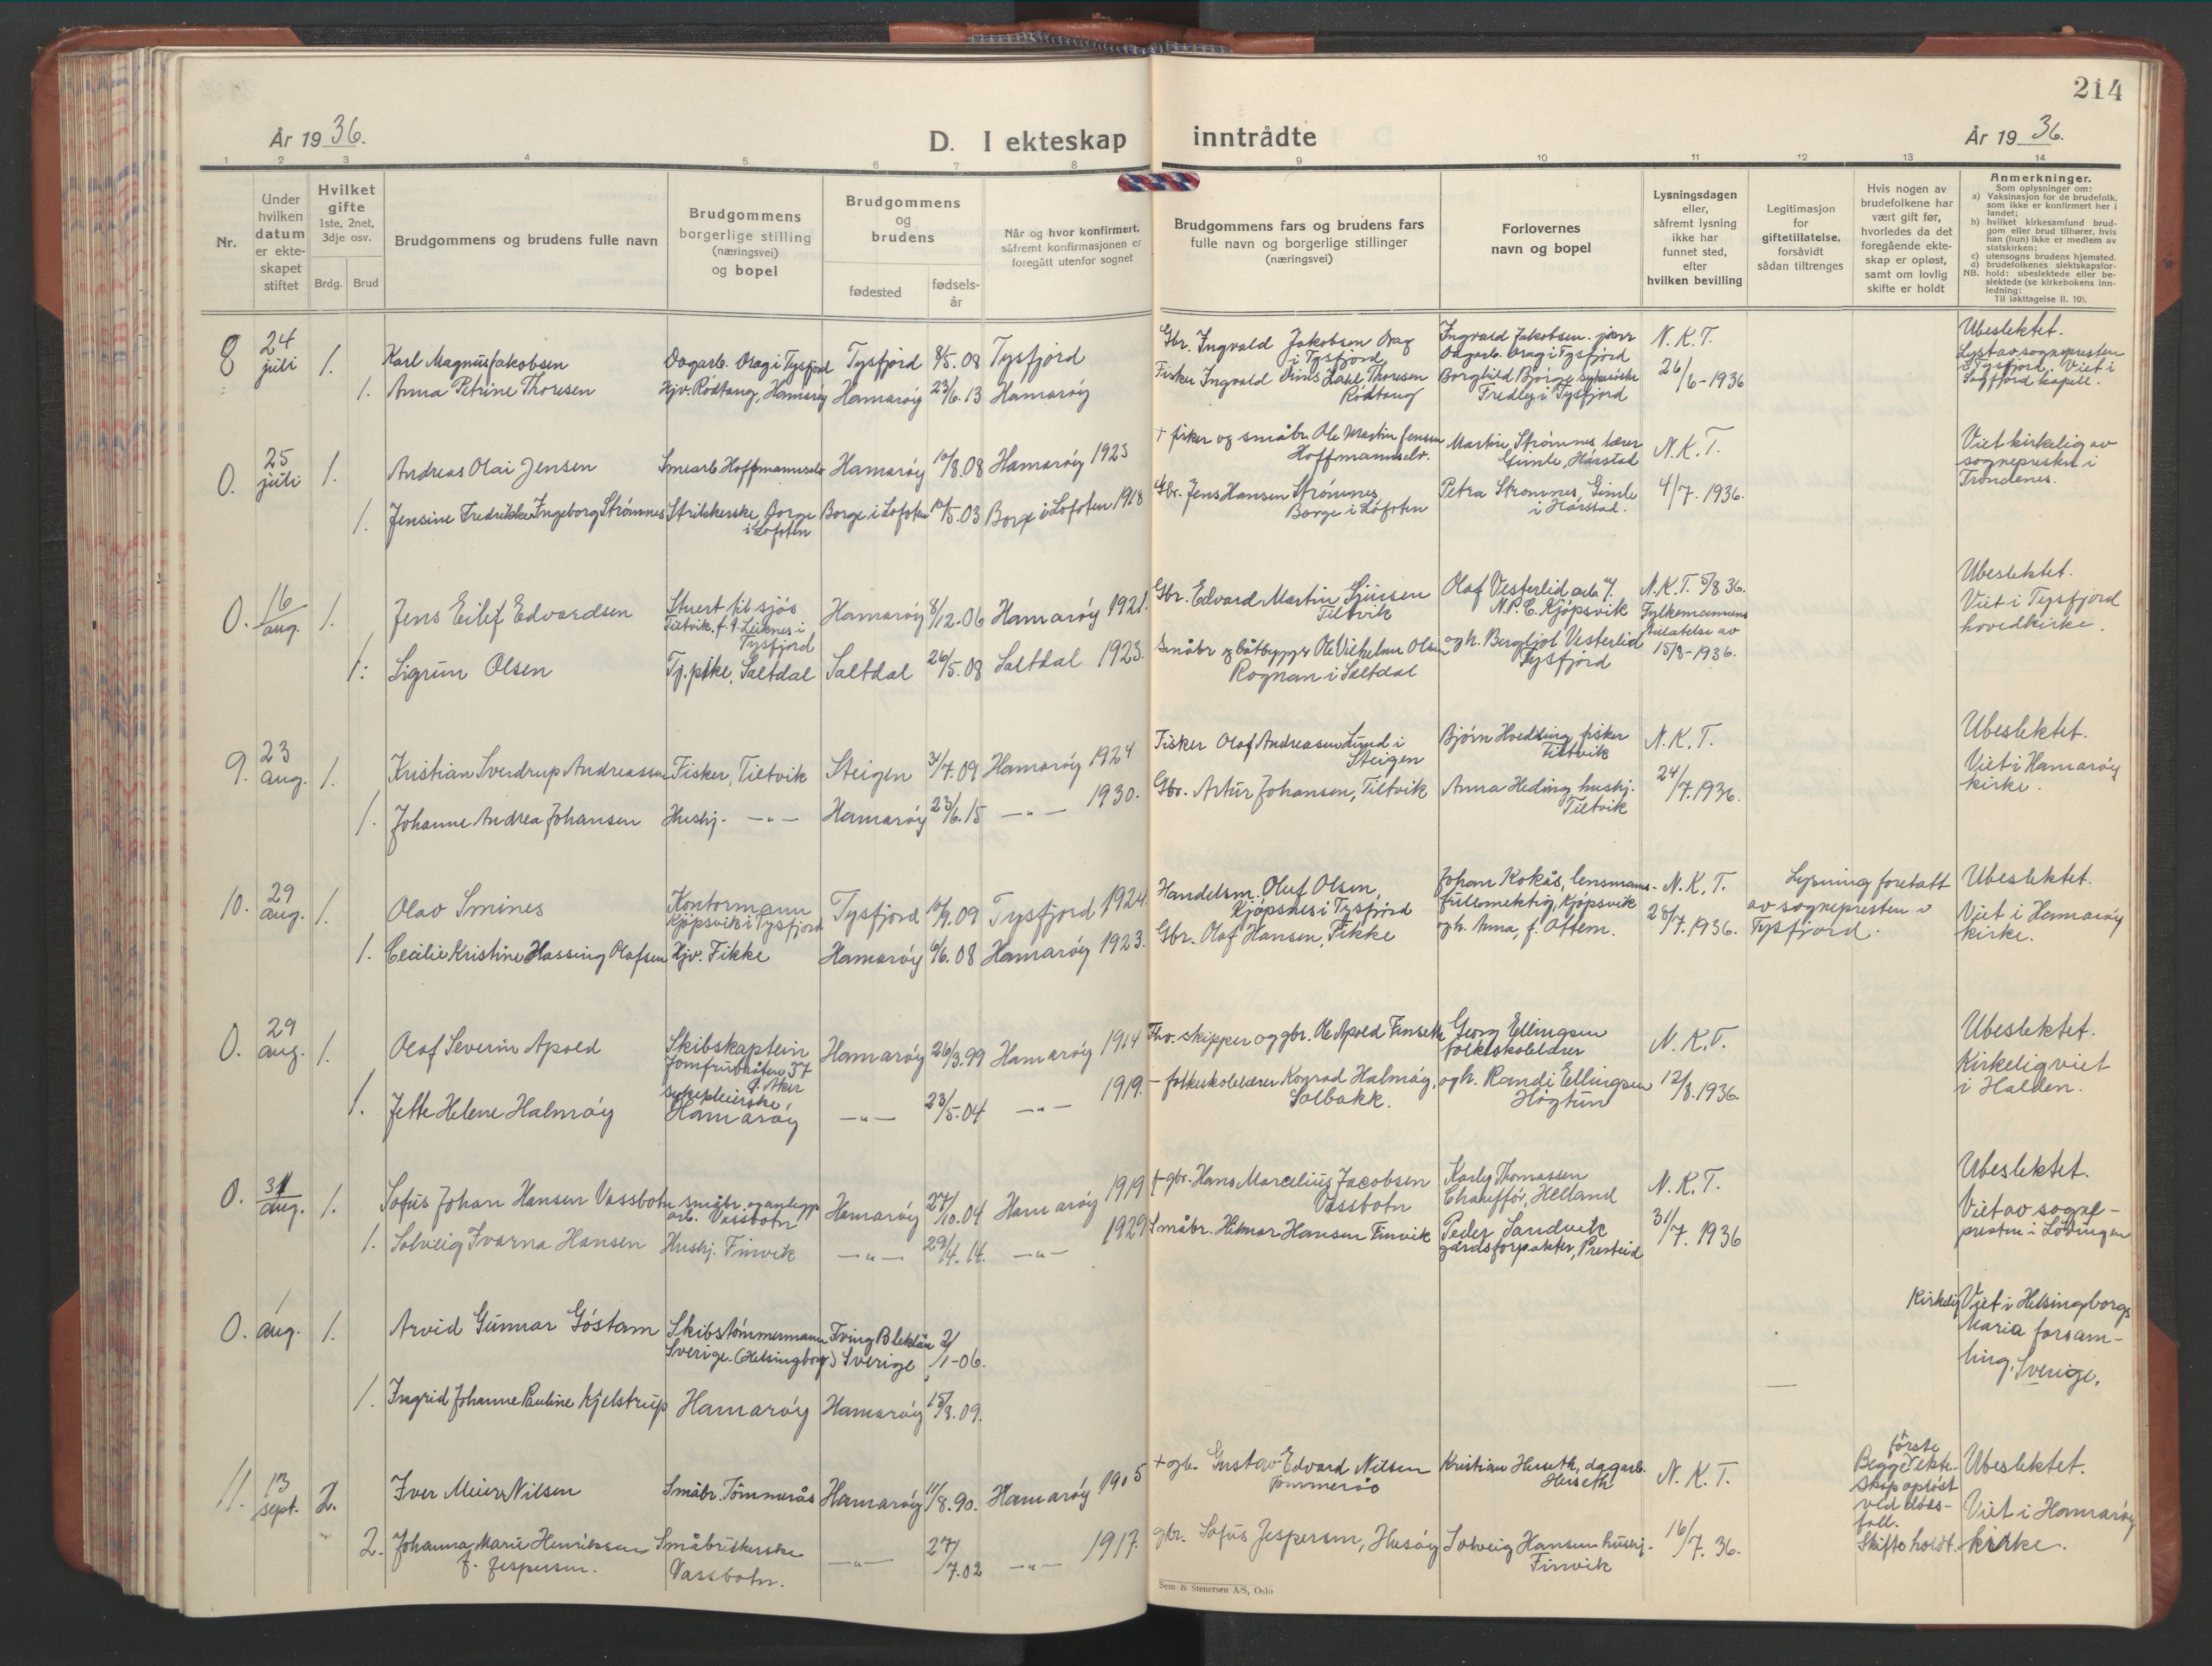 214
År 1936.
D. I ekteskap inntrådte
År 1936.
1 2 3 4 5 6 7 8 9 10 11 12 13 14
Nr.
Under
hvilken
datum
er ekte-
skapet
stiftet
Hvilket
gifte
1ste, 2net,
3dje osv.
Brdg. Brud
Brudgommens og brudens fulle navn
Brudgommens
borgerlige stilling
(næringsvei)
og bopel
Brudgommens
og
brudens
fødested
fødsels-
år
Når og hvor konfirmert,
såfremt konfirmasjonen er
foregått utenfor sognet
Brudgommens fars og brudens fars
fulle navn og borgerlige stillinger
(næringsvei)
Forlovernes
navn og bopel
Lysningsdagen
eller,
såfremt lysning
ikke har
funnet sted,
efter
hvilken bevilling
Legitimasjon
for
giftetillatelse,
forsåvidt
sådan tiltrenges
Hvis nogen av
brudefolkene har
vært gift før,
hvorledes da det
foregående ekte-
skap er opløst,
samt om lovlig
skifte er holdt
Anmerkninger.
Som oplysninger om:
a) Vaksinasjon for de brudefolk,
som ikke er konfirmert her i
landet;
b) hvilket kirkesamfund brud-
gom eller brud tilhører, hvis
han (hun) ikke er medlem av
statskirken;
c) utensogns brudens hjemsted.
d) brudefolkenes slektskapsfor-
NB. hold: ubeslektede eller be-
slektede (se kirkebokens inn-
ledning:
Til iakttagelse II. 10).
8 24 juli 1. Karl Magnus Jakobsen
Dagarb. Drag i Tysfjord Tysfjord 8/5.08 Tysfjord
Gbr. Ingvald Jakobsen Drag
i Tysfjord
Ingvald Jakobsen junr
Dagarb. Drag i Tysfjord
N.K.T.
26/6-1936
Ubeslektet.
Lyst av sognepresten
i Tysfjord. Viet i
Sagfjord kapell.
1. Anna Petrine Thoresen
Hjv. Rødtang, Hamarøy Hamarøy 23/6.13 Hamarøy
Fisker Ingvald Dahl Thoresen
Rødtang
Borghild Bjørge
Fredley i Tysfjord
0. 25 juli 1. Andreas Olai Jensen
Smearb. Hoffmannselv Hamarøy 10/8.08 Hamarøy 1923
+ fisker og småbr. Ole Martin Jensen
Hoffmannselv.
Martin Strømnes lærer
Gimle, Harstad
N.K.T.
4/7.1936.
Viet kirkelig av
sognepresten i
Trondenes.
1. Jensine Fredrikke Ingeborg Strømnes
Strikkerske Borge
i Lofoten
Borge i Lofoten 10/5.03 Borge i Lofoten 1918
Gbr. Jens Hansen Strømnes
Borge i Lofoten
Petra Strømnes, Gimle
i Harstad.
0. 16 aug. 1. Jens Eilif Edvardsen
Stuert til sjøs
Tiltvik. f. t. Leiknes i
Tysfjord
Hamarøy 8/12-06 Hamarøy 1921.
Gbr. Edvard Martin Sjursen
Tiltvik
Olaf Vesterlid arb. v/
N.P.C. Kjøpsvik
N.K.T. 5/8 36.
Fylkesmannens
tillatelse av
15/8-1936.
Ubeslektet.
Viet i Tysfjord
hovedkirke.
1. Sigrun Olsen
Tj.pike, Saltdal Saltdal 26/5.08 Saltdal 1923.
Småbr og båtbygger Ole Vilhelm Olsen
Rognan i Saltdal
og h. Bergljot Vesterlid
Tysfjord
9. 23 aug. 1. Kristian Sverdrup Andreassen
Fisker, Tiltvik Steigen 31/7.09 Hamarøy 1924
Fisker Olaf Andreassen Lund i
Steigen
Bjørn Hvedding fisker
Tiltvik
N.K.T.
24/7.1936.
Ubeslektet.
Viet i Hamarøy
kirke.
1. Johanne Andrea Johansen
Hushj. —"— Hamarøy 23/6.15 —"— 1930.
Gbr. Artur Johansen, Tiltvik
Anna Heding hushj.
Tiltvik
10. 29 aug. 1. Olav Smines
Kontormann
Kjøpsvik i Tysfjord
Tysfjord 10/9.09 Tysfjord 1924.
Handelsm. Oluf Olsen,
Kjøpsnes i Tysfjord
Johan Kokås, lensmanns-
fullmektig, Kjøpsvik
N.K.T.
28/7.1936.
Lysning foretatt
av sognepresten i
Tysfjord.
Ubeslektet.
Viet i Hamarøy
kirke.
1. Cecilie Kristine Hassing Olafsen
Hjv. Fikke Hamarøy 6/6.08 Hamarøy 1923.
Gbr. Olaf Hansen, Fikke
og h. Anna, f. Aftem.
0. 29 aug. 1. Olaf Severin Apold
Skibskaptein
Jomfrubråten 37
Ø. Aker
Hamarøy 26/3.99 Hamarøy 1914
Fhv. skipper og gbr. Ole Apold Finseth
Georg Ellingsen
folkeskolelærer
N.K.T.
12/8.1936.
Ubeslektet.
Kirkelig viet
i Halden.
1. Jette Helene Halmøy
sykepleierske,
Hamarøy
—"— 23/5.04 —"— 1919.
- folkeskolelærer Konrad Halmøy,
Solbakk.
og h. Randi Ellingsen
Høgtun
0. 31 aug. 1. Sofus Johan Hansen Vassbotn
småbr. og anlegg
arb. Vassbotn
Hamarøy 27/10.04 Hamarøy 1919
+ gbr. Hans Marcelius Jacobsen
Vassbotn
Karly Thomassen
Chauffør, Helland
N.K.T.
31/7.1936
Ubeslektet.
Viet av sogne-
presten i Lødingen
1. Solveig Ivarna Hansen
Hushj. Finvik —"— 29/4.14. —"— 1929
Småbr. Helmer Hansen Finvik
Peder Sandvik
gårdsforpakter, Presteid
0. 1 aug. 1. Arvid Gunnar Göstam
Skibstømmermann
Sverige. (Helsingborg)
Tving Blekläne
Sverige
2/1-06.
Kirkelig Viet i Helsingborgs
Maria forsam-
ling, Sverige.
1. Ingrid Johanne Pauline Kjelstrup
Hamarøy Hamarøy 15/8.09.
11. 13 sept. 2. Iver Meier Nilsen
Småbr. Tømmerås Hamarøy 11/8.90. Hamarøy 1905
+ gb. Gustav Edvard Nilsen
Tømmerås
Kristian Hesseth, dagarb.
Hesseth
N.K.T.
16/7.36.
Begges første ekte-
skap opløst
ved døds-
fall.
Skifte holdt.
Ubeslektet.
Viet i Hamarøy
kirke.
2. Johanna Marie Henriksen
f. Jespersen.
Småbrukerske
Vassbotn.
—"— 27/7.02 —"— 1917.
gbr. Sofus Jespersen, Husøy
Solveig Hansen hushj.
Finvik
Sem & Stenersen A/S, Oslo